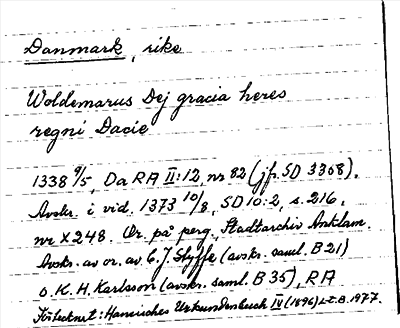 Danmark, rike
Woldemarus Dej gracia heres
regni Dacie
1338 9/5, Da RA II:12, nr 82 (jfr SD 3368).
Avskr. i vid. 1373 10/8, SD 10:2, s. 216,
nr X248. Or. på perg. Stadtarchiv Anklam.
Avskr. av or. av C.J. Styffe (avskr. saml. B 21)
o. K.H. Karlsson (avskr. saml. B 35), RA
Förtecknat: Hansisches Urkundenbuch IV (1896) L.T.B. 1977.